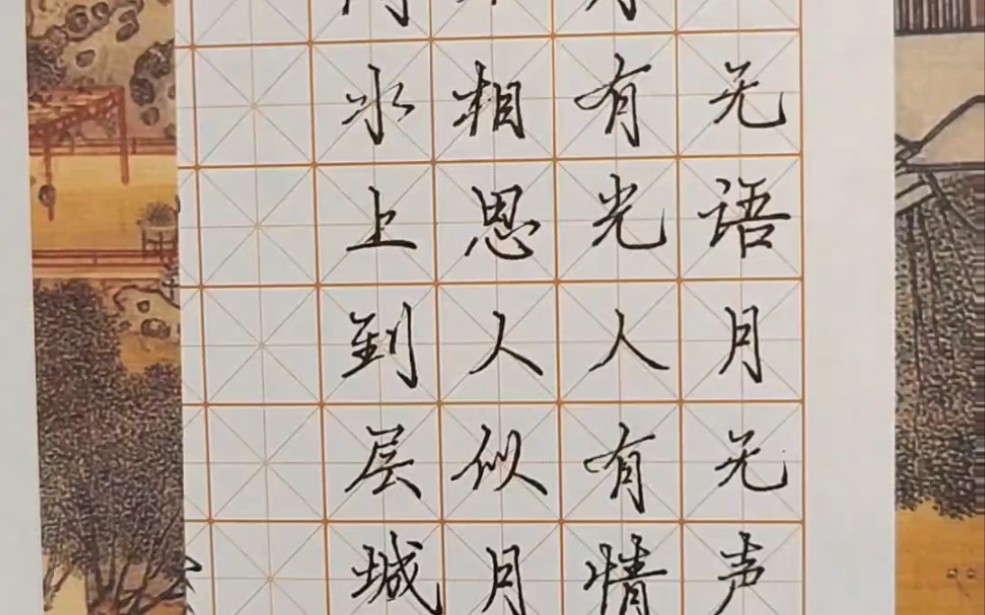 无语月无声
有光人有情
相思人似月
水上到层城